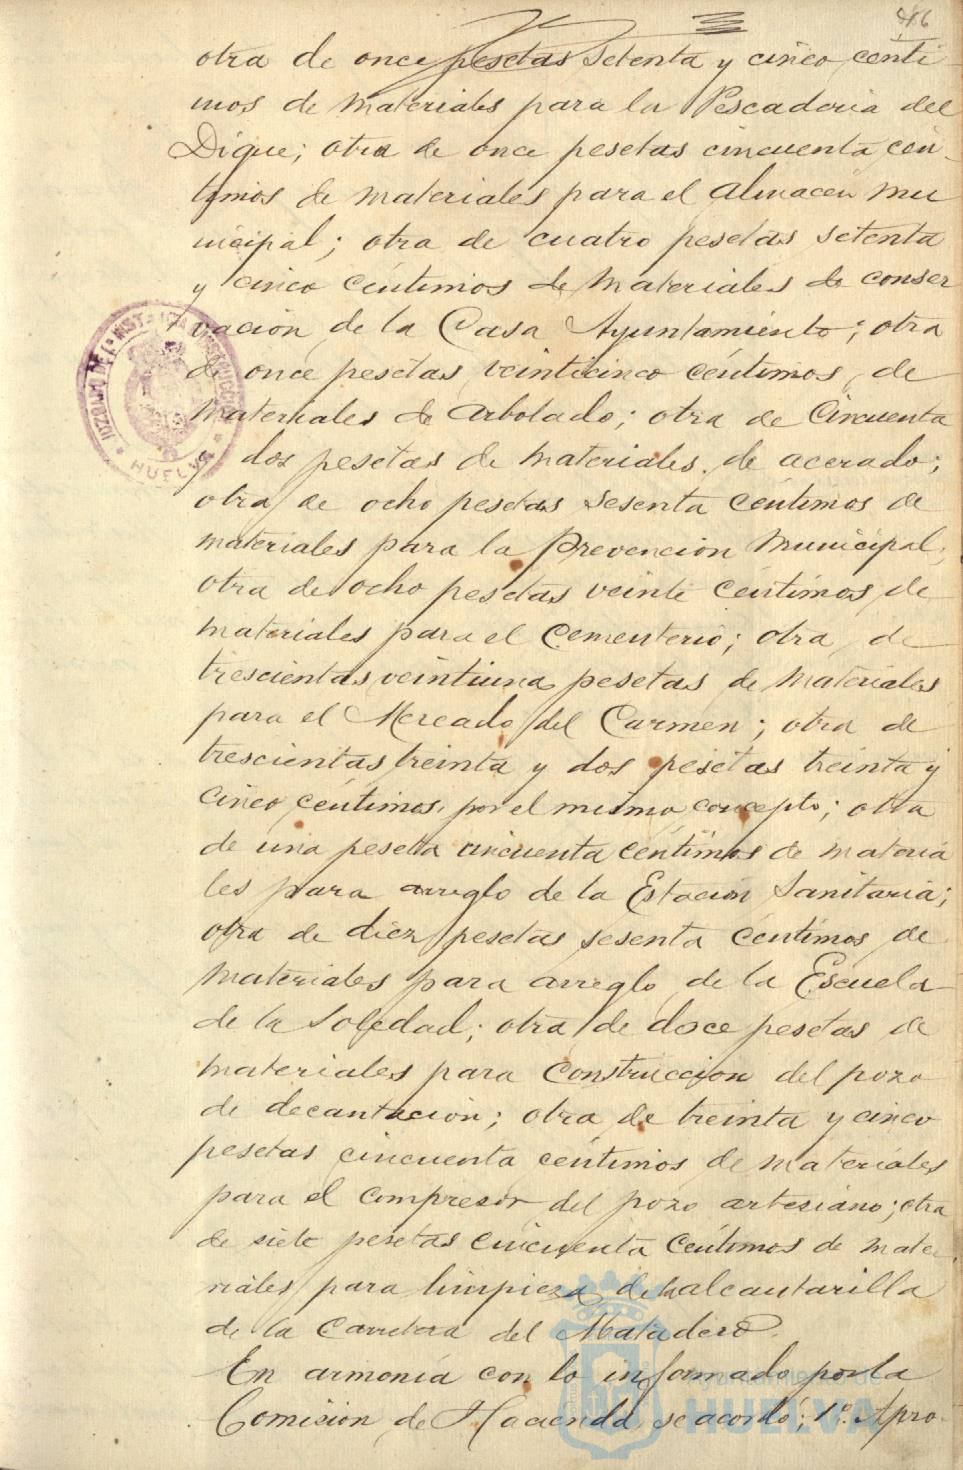 46
otra de once pesetas setenta y cinco centi
mos de materiales para la Pescaderia del
Dique; otra de once pesetas cincuenta cén
timos de materiales para el almacén mu
nicipal; otra de cuatro pesetas setenta
y cinco céntimos de materiales de conser
vación de la Casa Ayuntamiento; otra
de once pesetas veinticinco céntimos de
materiales de arbolado; otra de cincuenta
y dos pesetas de materiales de acerado;
otra de ocho pesetas sesenta céntimos de
materiales para la Prevención Municipal;
otra de ocho pesetas veinte céntimos de
materiales para el Cementerio; otra de
trescientas veintiuna pesetas de materiales
para el Mercado del Carmen; otra de
trescientas treinta y dos pesetas treinta y
cinco céntimos por el mismo concepto; otra
de una peseta cincuenta céntimos de materia
les para arreglo de la Estación Sanitaria;
otra de diez pesetas sesenta céntimos de
materiales para arreglo de la Escuela
de la Soledad; otra de doce pesetas de
materiales para construccion del pozo
de decantación; otra de treinta y cinco
pesetas cincuenta céntimos de materiales
para el compresor del pozo artesiano; otra
de siete pesetas cincuenta céntimos de mate
riales para limpieza de la alcantarilla
de la Carretera del Matadero.
En armonía con lo informado por la
Comisión de Hacienda se acordó; 1º. Apro-
HUELVA
Ayuntamiento de
HUELVA